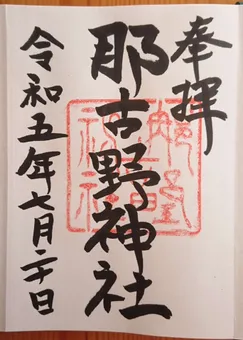 奉拝
那古野神社
令和五年七月二十日